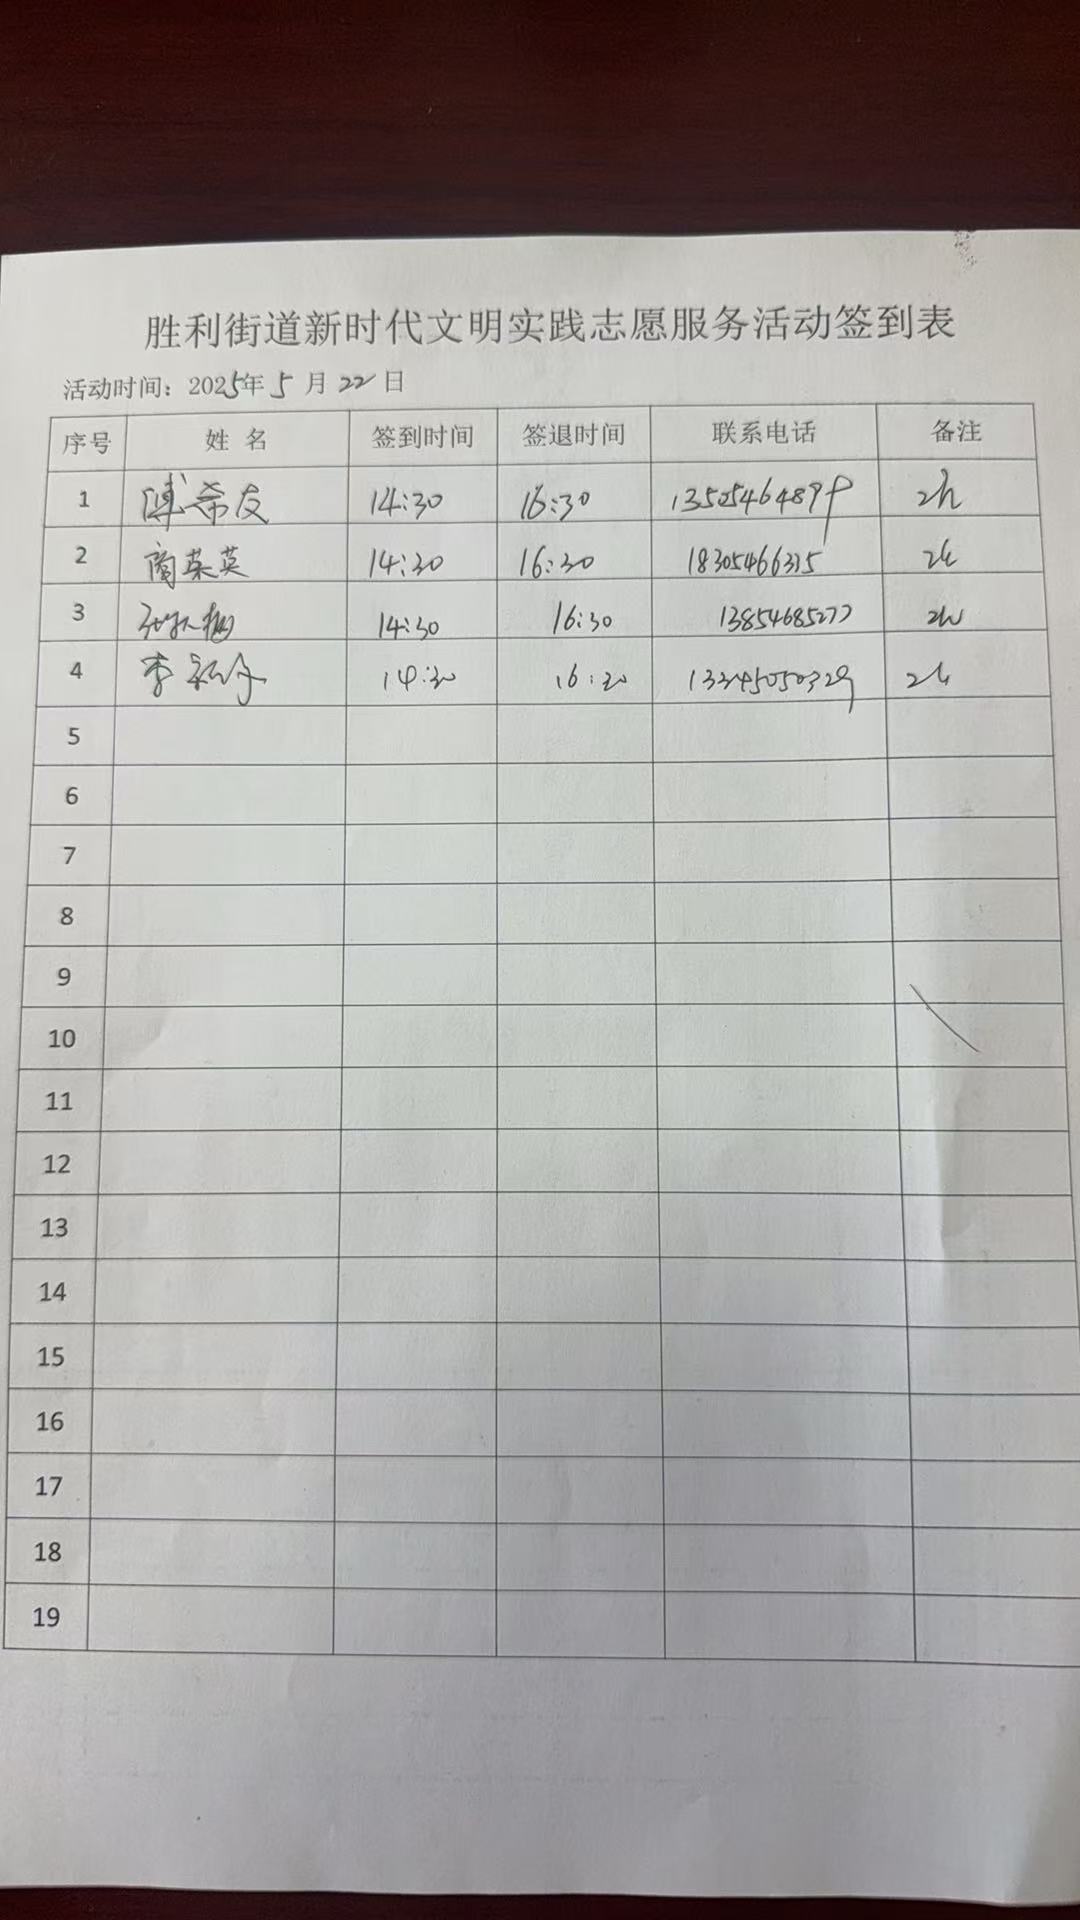 胜利街道新时代文明实践志愿服务活动签到表
活动时间：2025年5月22日
序号 姓 名 签到时间 签退时间 联系电话 备注
1 希友 14:30 16:30 13505464899 2h
2 商荣英 14:30 16:30 18305466315 2h
3 14:30 16:30 13854685277 2h
4 李 14:30 16:30 2h
5
6
7
8
9
10
11
12
13
14
15
16
17
18
19